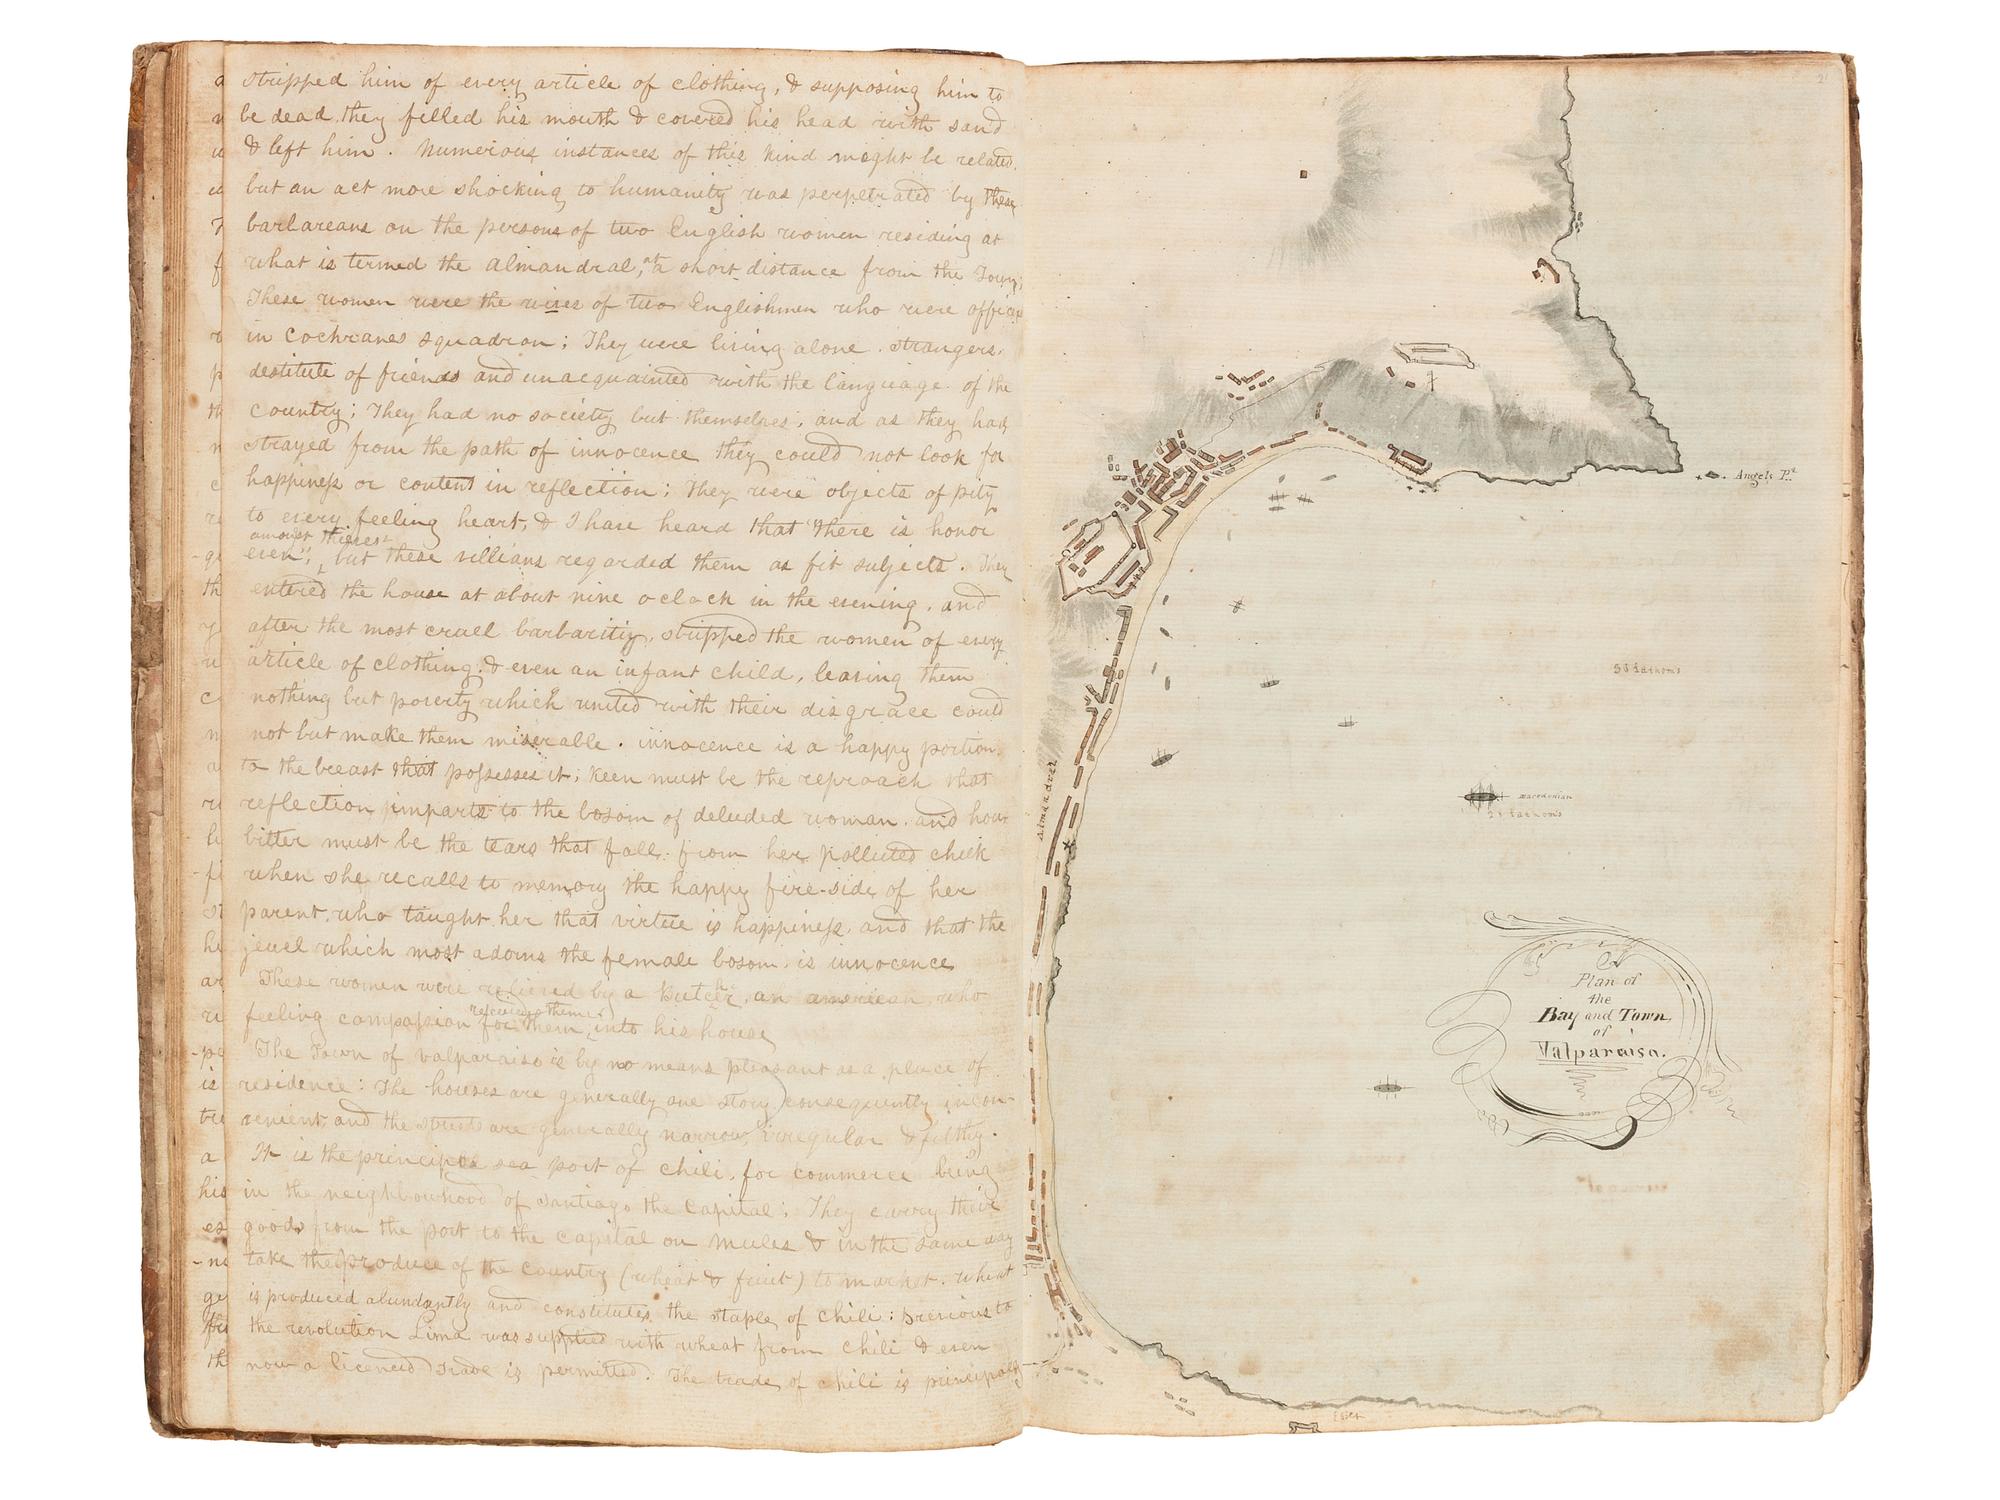 stripped him of every article of clothing, & supposing him to
be dead, they filled his mouth & covered his head with sand
& left him. Numerous instances of this kind might be related.
but an act more shocking to humanity was perpetrated by these
barbareans on the persons of two English women residing at
what is termed the Almandral, at a short distance from the Town,
These women were the wives of two Englishmen who were
in Cochranes squadron; They were living alone. strangers.
destitute of friends and unacquainted with the language of the
country; They had no society but themselves, and as they had
strayed from the path of innocence they could not look for
happiness or content in reflection; They were objects of pity
to every feeling heart, & I have heard that "there is honor
amongst thieves"
even", but these villians regarded them as fit subjects. They
entered the house at about nine oclock in the evening, and
after the most cruel barbarity, stripped the women of every
article of clothing, & even an infant child, leaving them
nothing but poverty which united with their disgrace could
not but make them miserable. innocence is a happy portion.
to the breast that possesses it; keen must be the reproach that
reflection imparts to the bosom of deluded woman, and how
bitter must be the tears that fall from her polluted cheek
when she recalls to memory the happy fire-side of her
parent, who taught her that virtue is happiness, and that the
jewel which most adorns the female bosom, is innocence
These women were relieved by a butcher, an american, who
feeling compassion for them, into his house
The Town of Valparaiso is by no means pleasant as a place of
residence: The houses are generally one story, consequently incon-
venient, and the streets are generally narrow, irregular & filthy.
It is the principle sea port of Chili, for commerce being
in the neighbowhood of Santiago the Capital; They carry their
goods from the port to the capital on mules & in the same way
take the produce of the country (wheat & fruit) to market. wheat
is produced abundantly and constitutes the staple of Chili: previous to
the revolution Lima was supplied with wheat from Chili & even
now a licenced trade is permitted. The trade of Chili is principally
Angels Pt.
Almandrel
Macedonian
fathoms
fathom's
A
Plan of
the
Bay and Town,
of
Valparaiso.